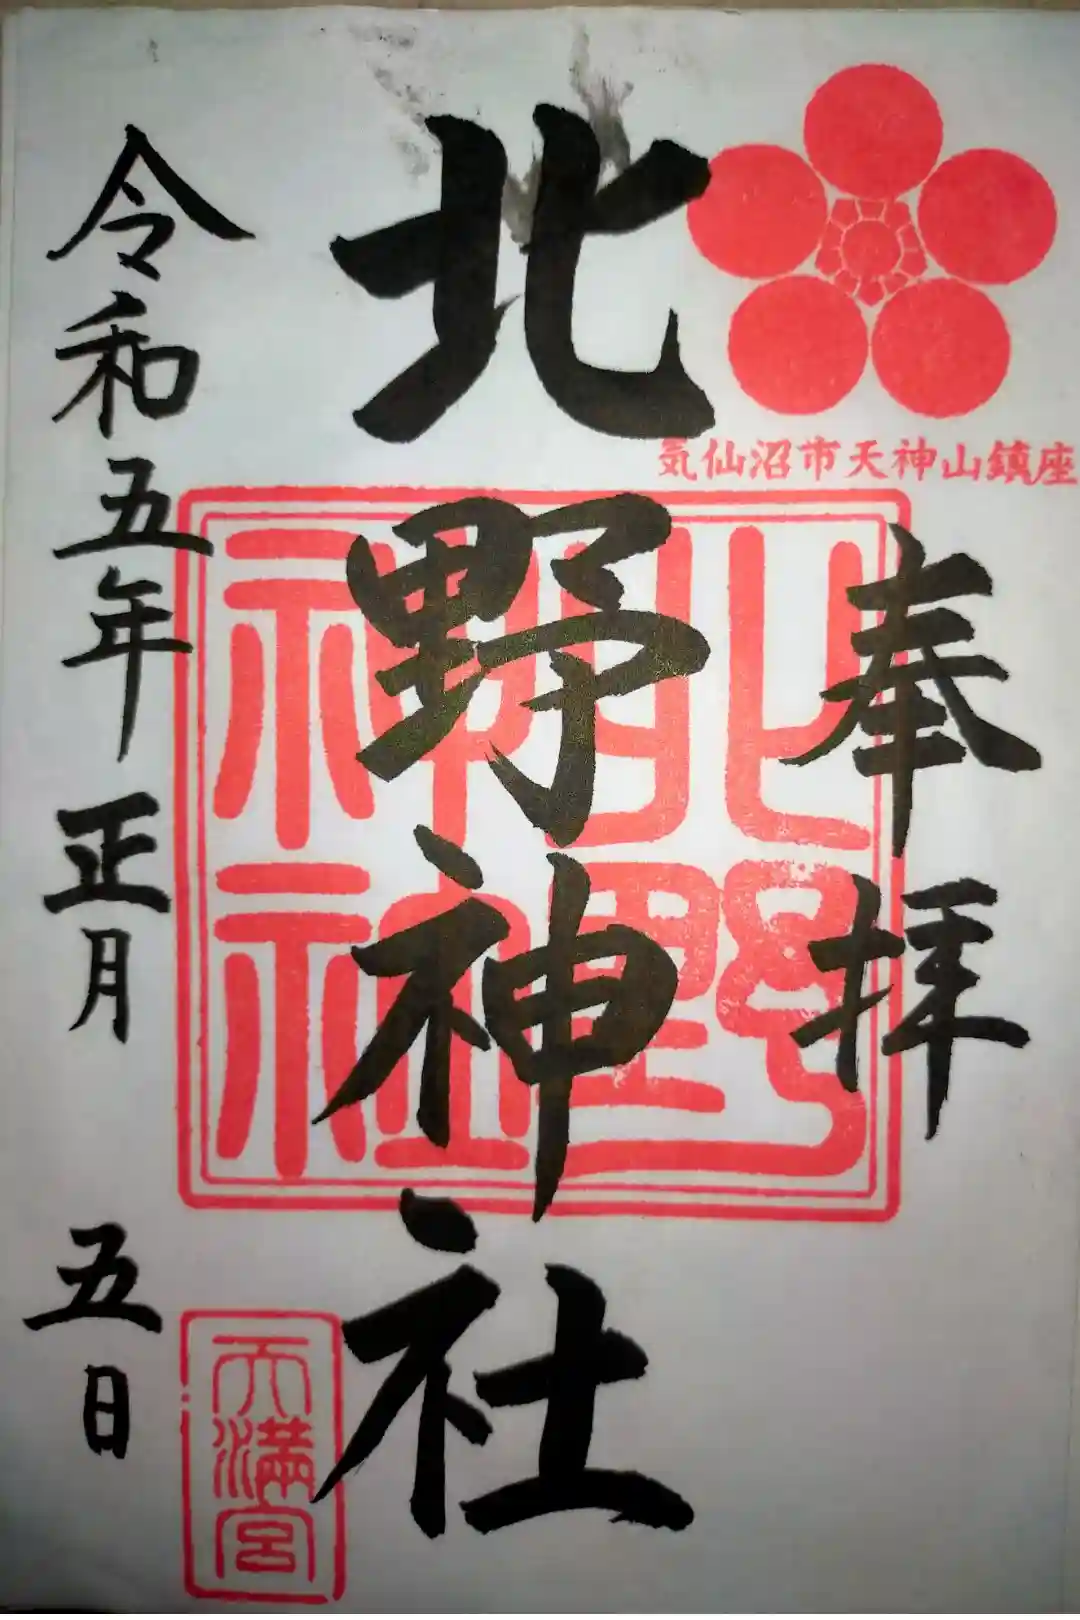 気仙沼市天神山鎮座
奉拝
北野神社
北野
神社
令和五年正月五日
天満宮